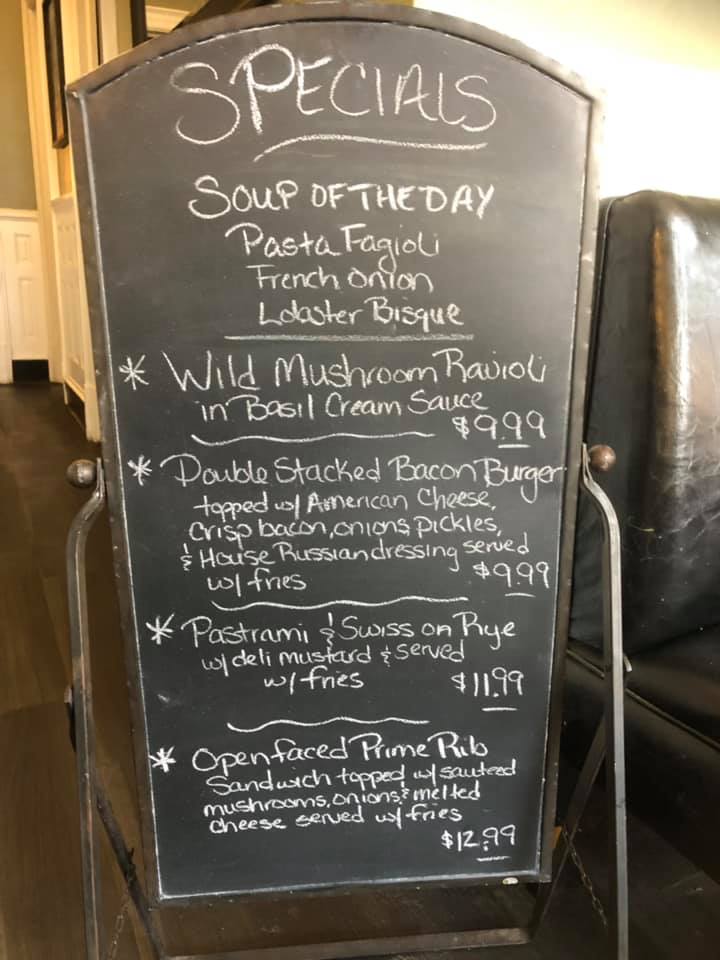 SPECIALS
SOUP OF THE DAY
Pasta Fagioli
French Onion
Lobster Bisque
* Wild Mushroom Ravioli
in Basil Cream Sauce
$9.99
* Double Stacked Bacon Burger
topped w/ American Cheese,
Crisp bacon, onions, pickles,
& House Russian dressing served
w/ fries
$9.99
* Pastrami & Swiss on Rye
w/ deli mustard & served
w/ fries
$11.99
* Openfaced Prime Rib
Sandwich topped w/ sauteed
mushrooms, onions, & melted
cheese served w/ fries
$12.99